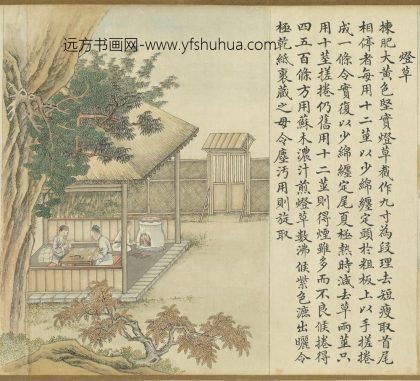 远方书画网-www.yfshuhua.com-
燈草
揀肥大黃色堅實燈草截作九寸為段理去短瘦取首尾
相停者每用十二莖以少綿纏定頭於粗板上以手搓捲
成一條令實復以少綿纏定尾夏極熱時減去草兩莖只
用十莖搓捲仍舊用十二莖則得煙雖多而不良候捲得
四五百條方用蘇木濃汁煎燈草數沸候紫色漉出曬令
極乾紙裹藏之毋令塵污用則旋取